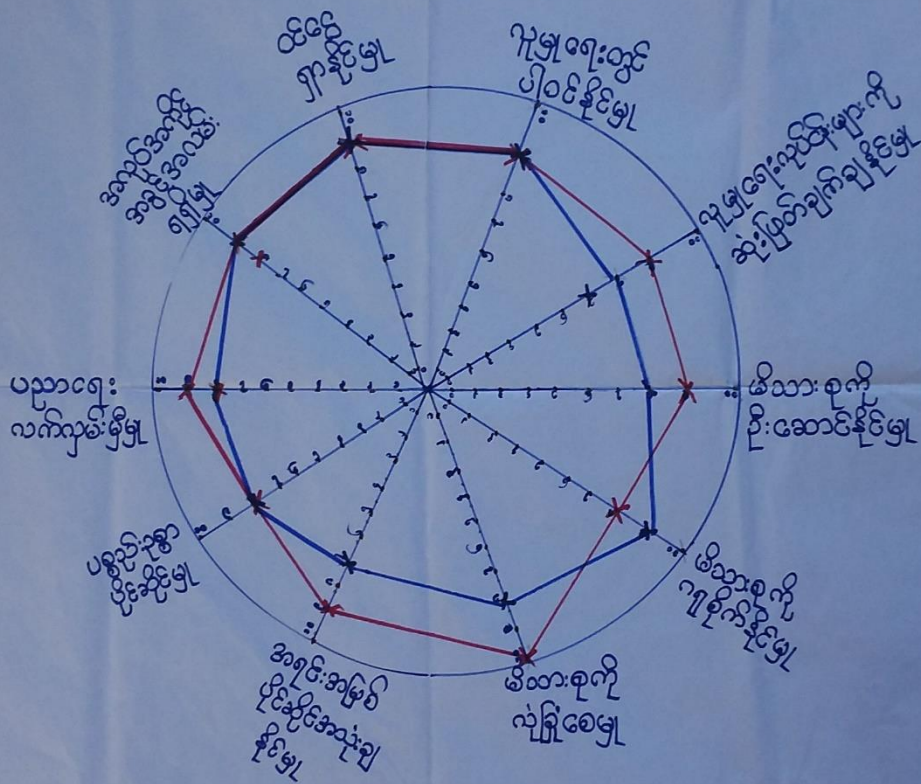 ဝင်ငွေ
ရှာနိုင်မှု
လူမှုရေးတွင်
ပါဝင်နိုင်မှု
လူမှုရေးလုပ်ငန်းများကို
ဆုံးဖြတ်ချက်ချနိုင်မှု
မိသားစုကို
ဦးဆောင်နိုင်မှု
မိသားစုကို
ဂရုစိုက်နိုင်မှု
မိသားစုကို
လုံခြုံစေမှု
အရင်းအမြစ်
ပိုင်ဆိုင်အသုံးချ
နိုင်မှု
ပစ္စည်းဥစ္စာ
ပိုင်ဆိုင်မှု
ပညာရေး
လက်လှမ်းမှီမှု
အလုပ်အကိုင်
အခွင့်အလမ်း
ရရှိမှု